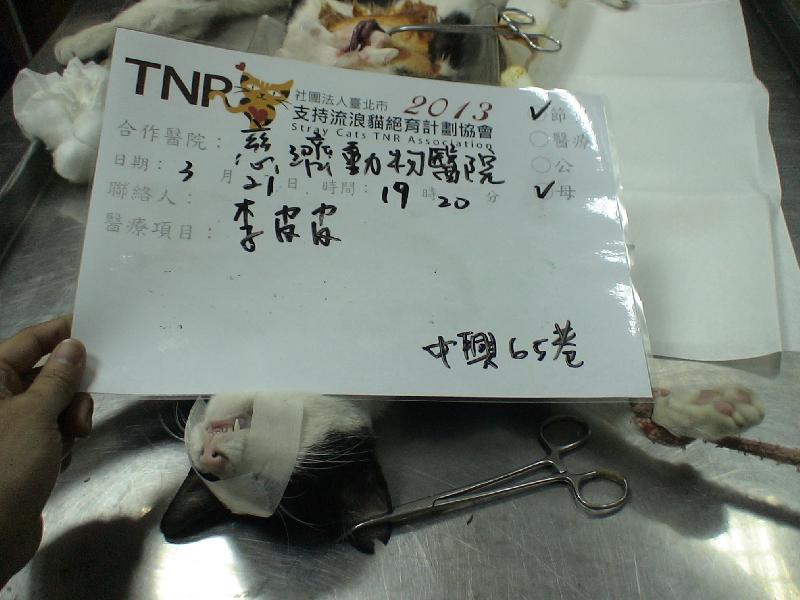 TNR
社團法人臺北市 2013
支持流浪貓絕育計劃協會
Stray Cats TNR Association
✓節
○醫療
○公
✓母
合作醫院：慈濟動物醫院
日期：3月21日 時間：19時20分
聯絡人：李皮皮
醫療項目：
中興65巷